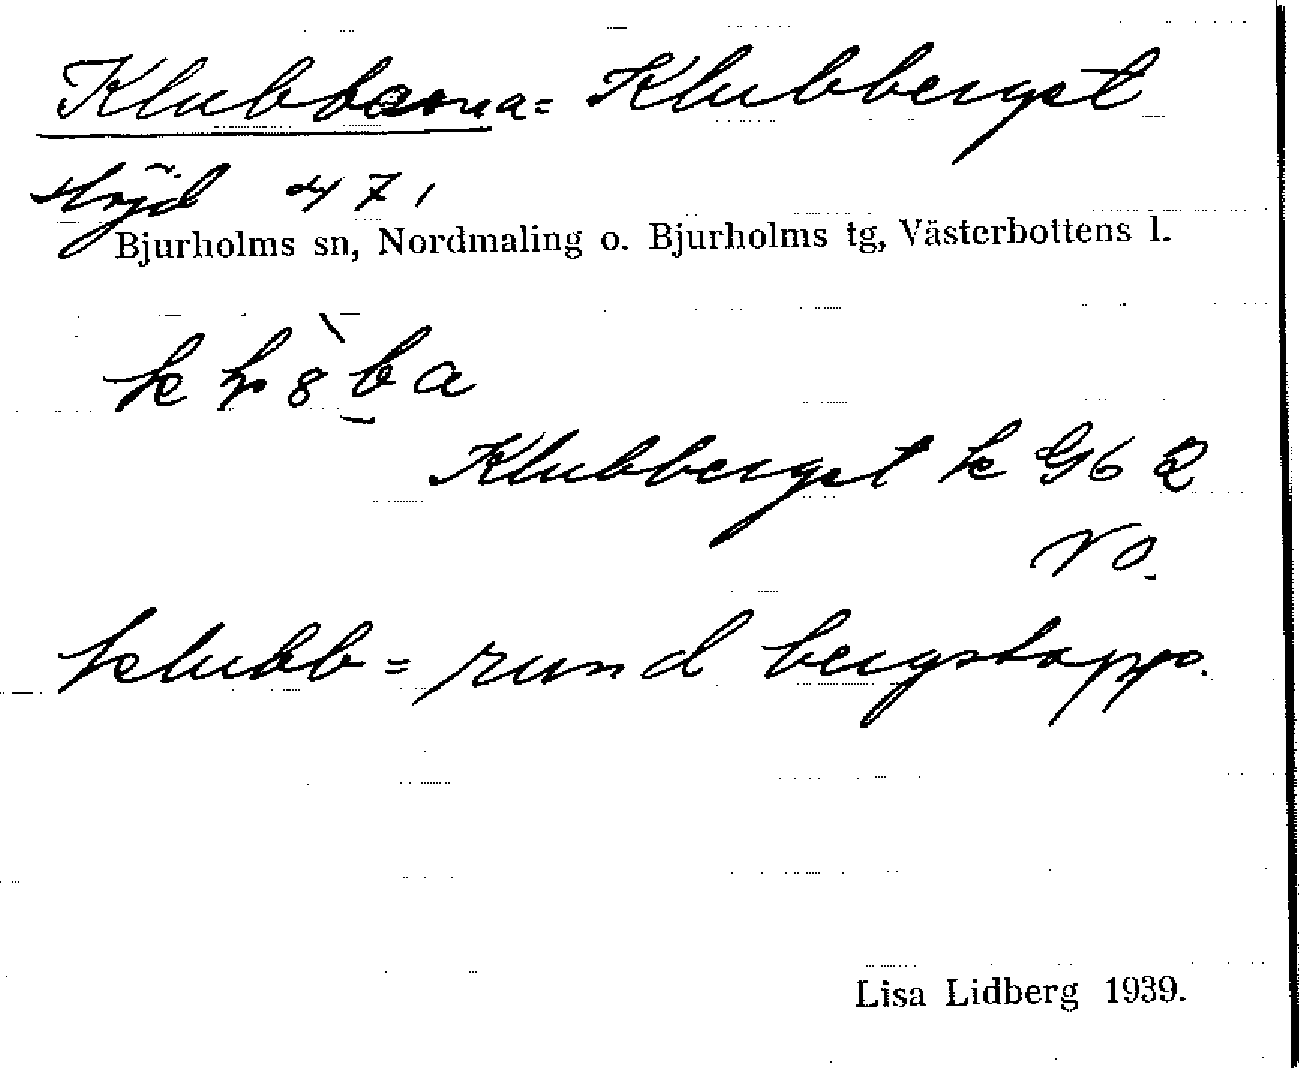 Klubbarna = Klubberget
Höjd 471
Bjurholms sn, Nordmaling o. Bjurholms tg, Västerbottens l.
Klubberget k G6 2
NO.
klubb = rund bergstopp.
Lisa Lidberg 1939.